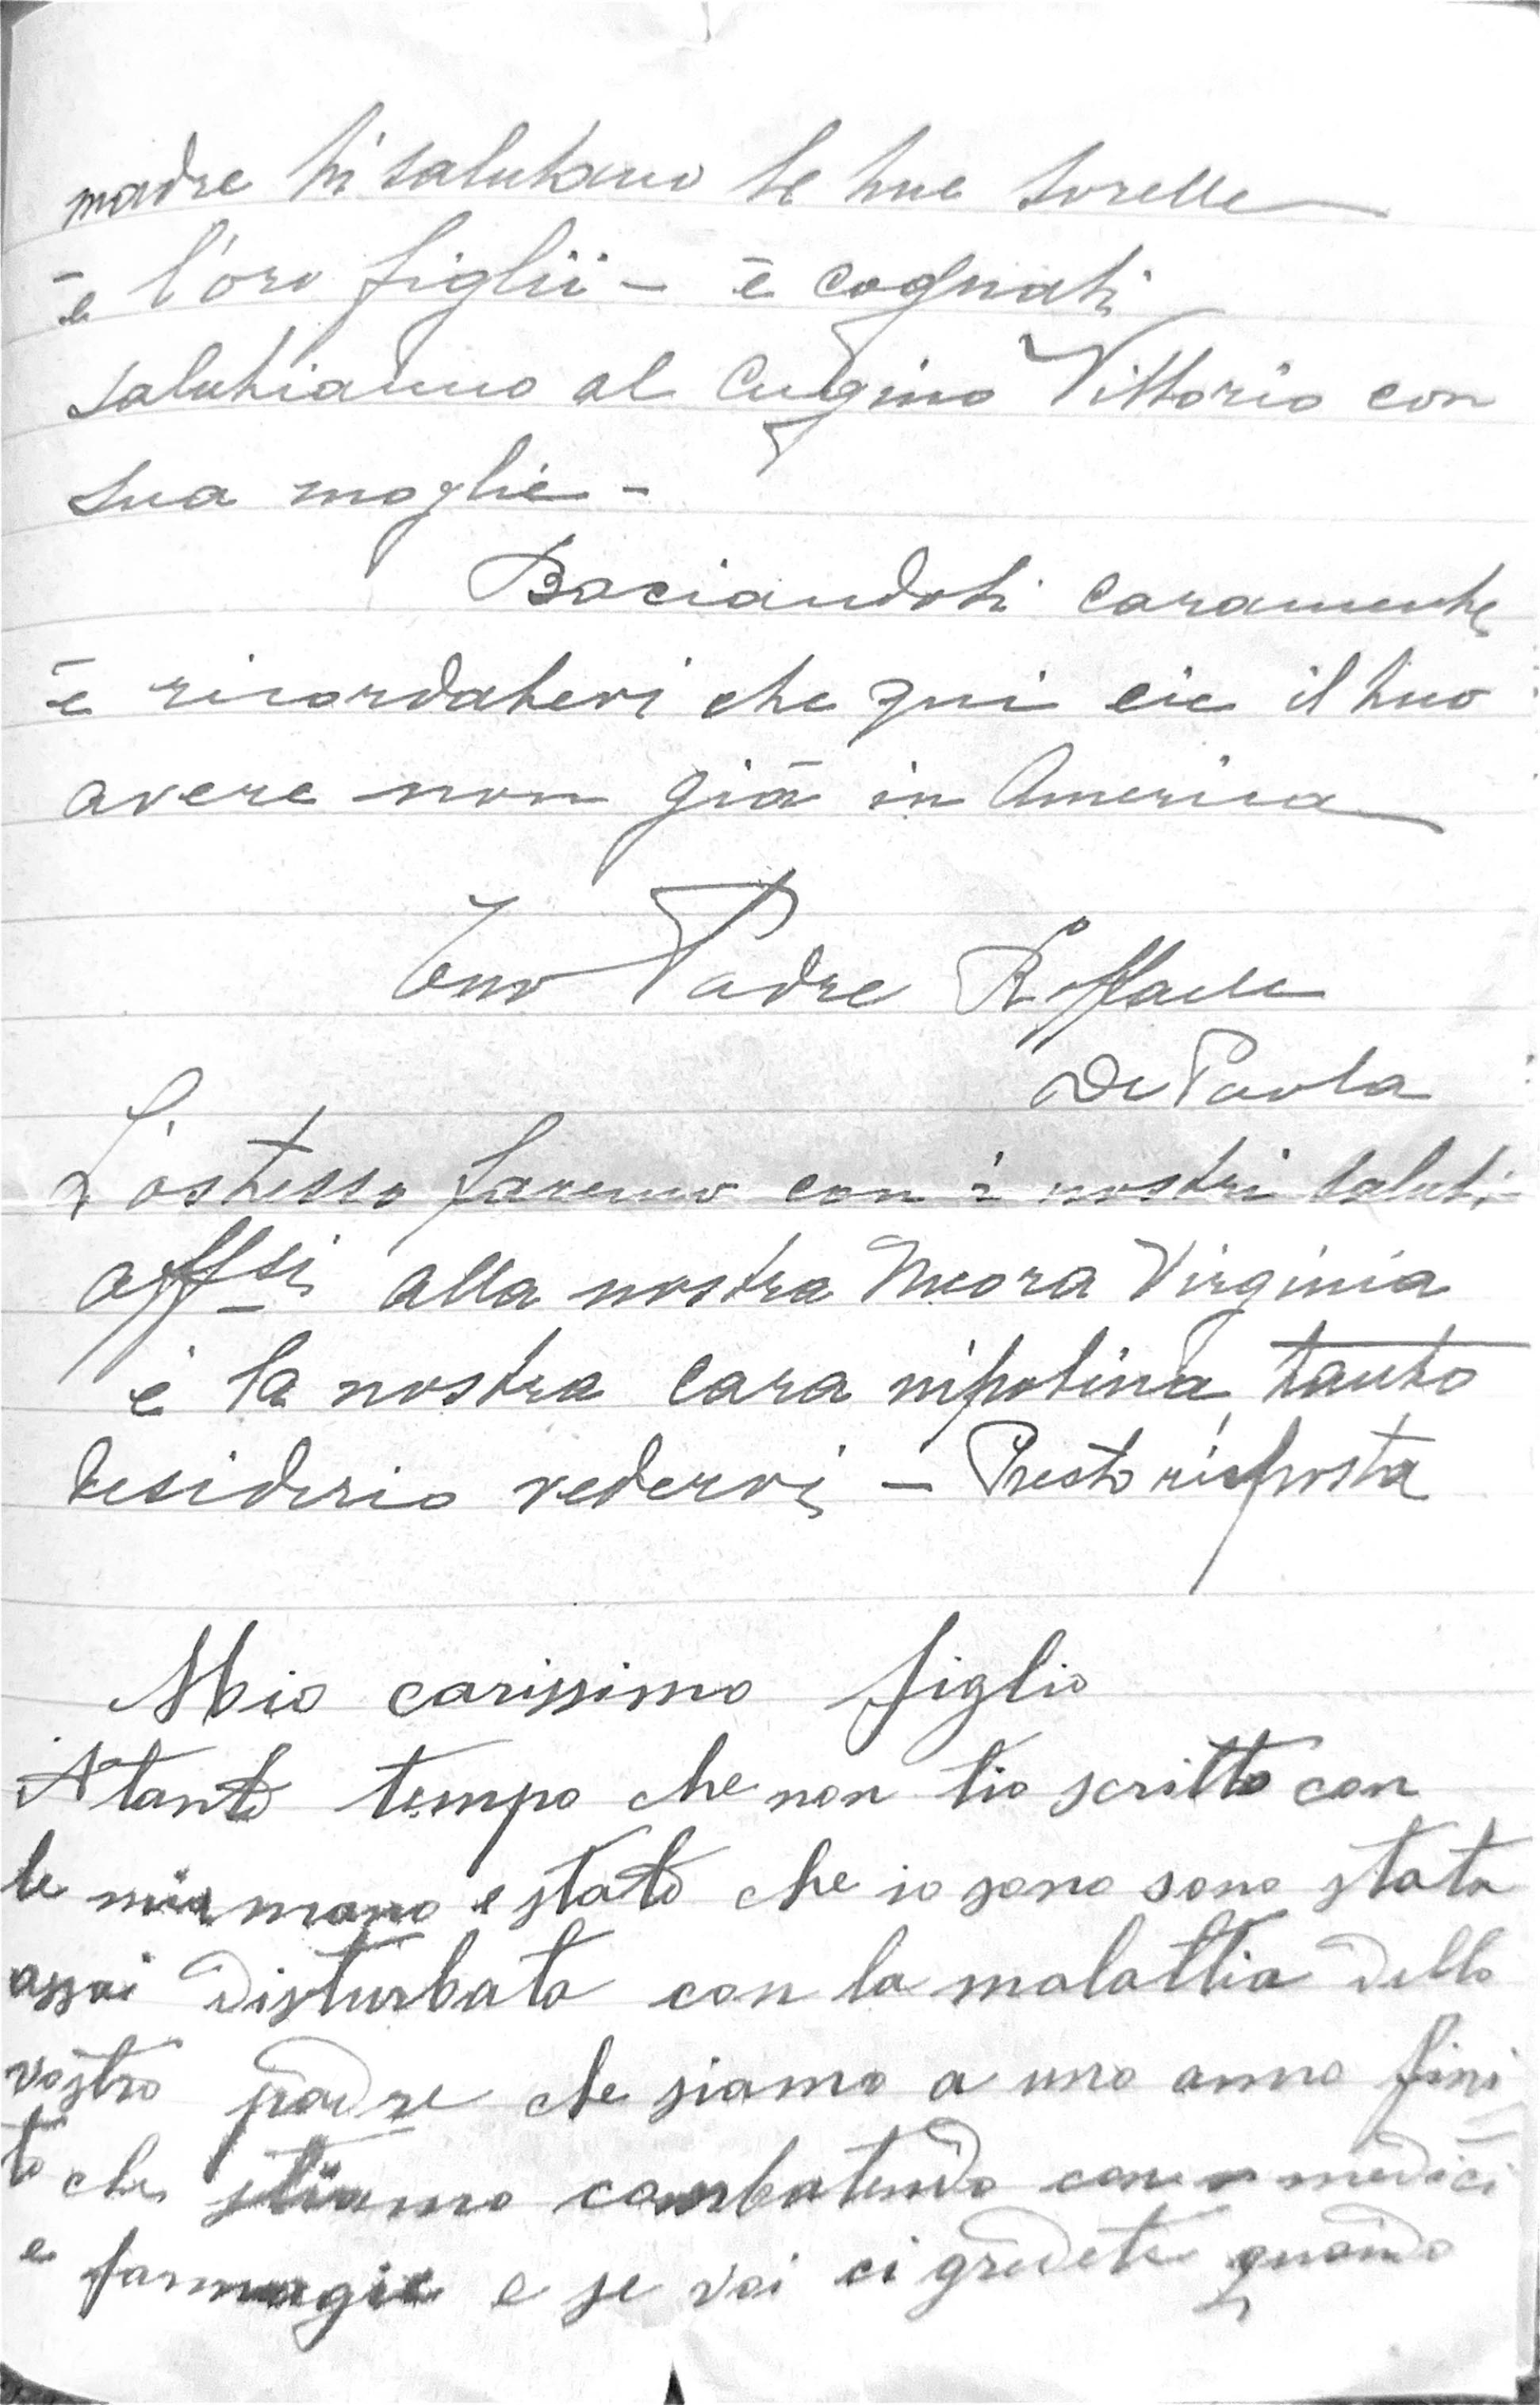 madre ti salutano le tue sorelle
e l'oro figlii - è cognati
salutiamno al Cugino Vittorio con
sua moglie -
Baciandoti caramente
è ricordatevi che qui cie il tuo
avere non già in America
Tuo Padre Raffaele
De Paola
L'ostesso faremo con i nostri saluti
affsi alla nostra Nuora Virginia
è la nostra cara nipotina tanto
desiderio vedervi - Presto risposta
Mio carissimo figlio
A tanto tempo che non tio scritto con
le mia mano e stato che io sono sono stata
assai disturbata con la malattia dello
vostro padre che siamo a uno anno fini
to che stiamo combatendo con medici
e farmagie e se voi ci gredete quando